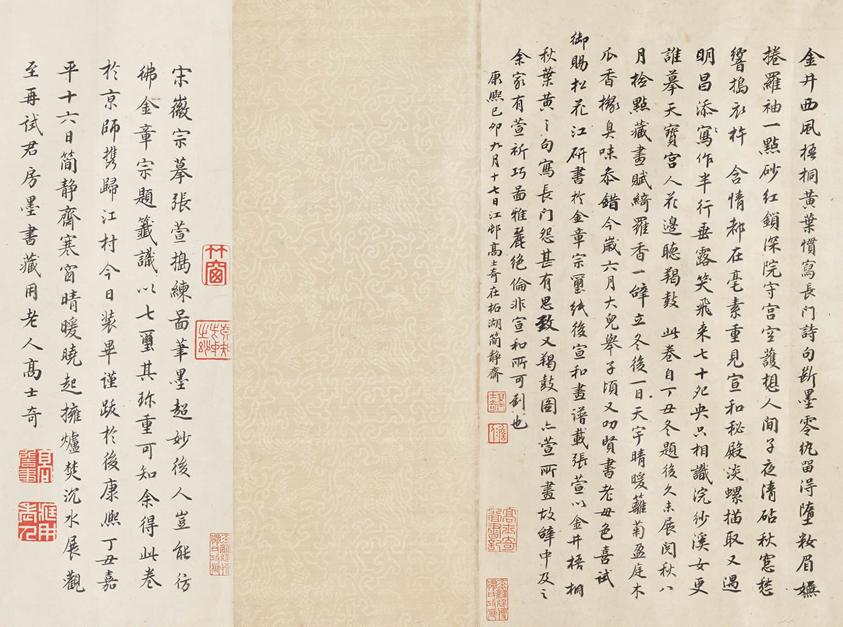 金井西風梧桐黃葉慣寫長門詩句斷墨零紈留得墮粧眉嫵
捲羅袖一點砂紅鎖深院守宮空護想人間子夜清砧秋窓愁
響搗衣杵 含情都在毫素重見宣和秘殿淡螺描取又遇
明昌添寫作半行垂露笑飛来七十夗央只相識浣紗溪女更
誰摹天寶宮人花邊聽羯鼓 此卷自丁丑冬題後久未展閱秋八
月檢點藏畫賦綺羅香一闋立冬後一日天宇晴暖籬菊盈庭木
瓜香櫞臭味叅錯今歲六月大兒舉子頃又叨賢書老母色喜試
御賜松花江研書於金章宗璽紙後宣和畫譜載張萱以金井梧桐
秋葉黃之句寫長門怨甚有思致又羯鼓圖亦萱所畫故闋中及之
余家有萱祈巧啚雅麗絕倫非宣和所可到也
康熙己卯九月十七日江邨高士奇在柘湖簡靜齋
高士奇圖書記
竹窗
宋徽宗摹張萱搗練啚筆墨超妙後人豈能彷
彿金章宗題籤識以七璽其珎重可知余得此卷
於京師携歸江村今日装畢謹跋於後康熙丁丑嘉
平十六日簡静齋寒窗晴暖曉起擁爐焚沉水展觀
至再試君房墨書藏用老人高士奇